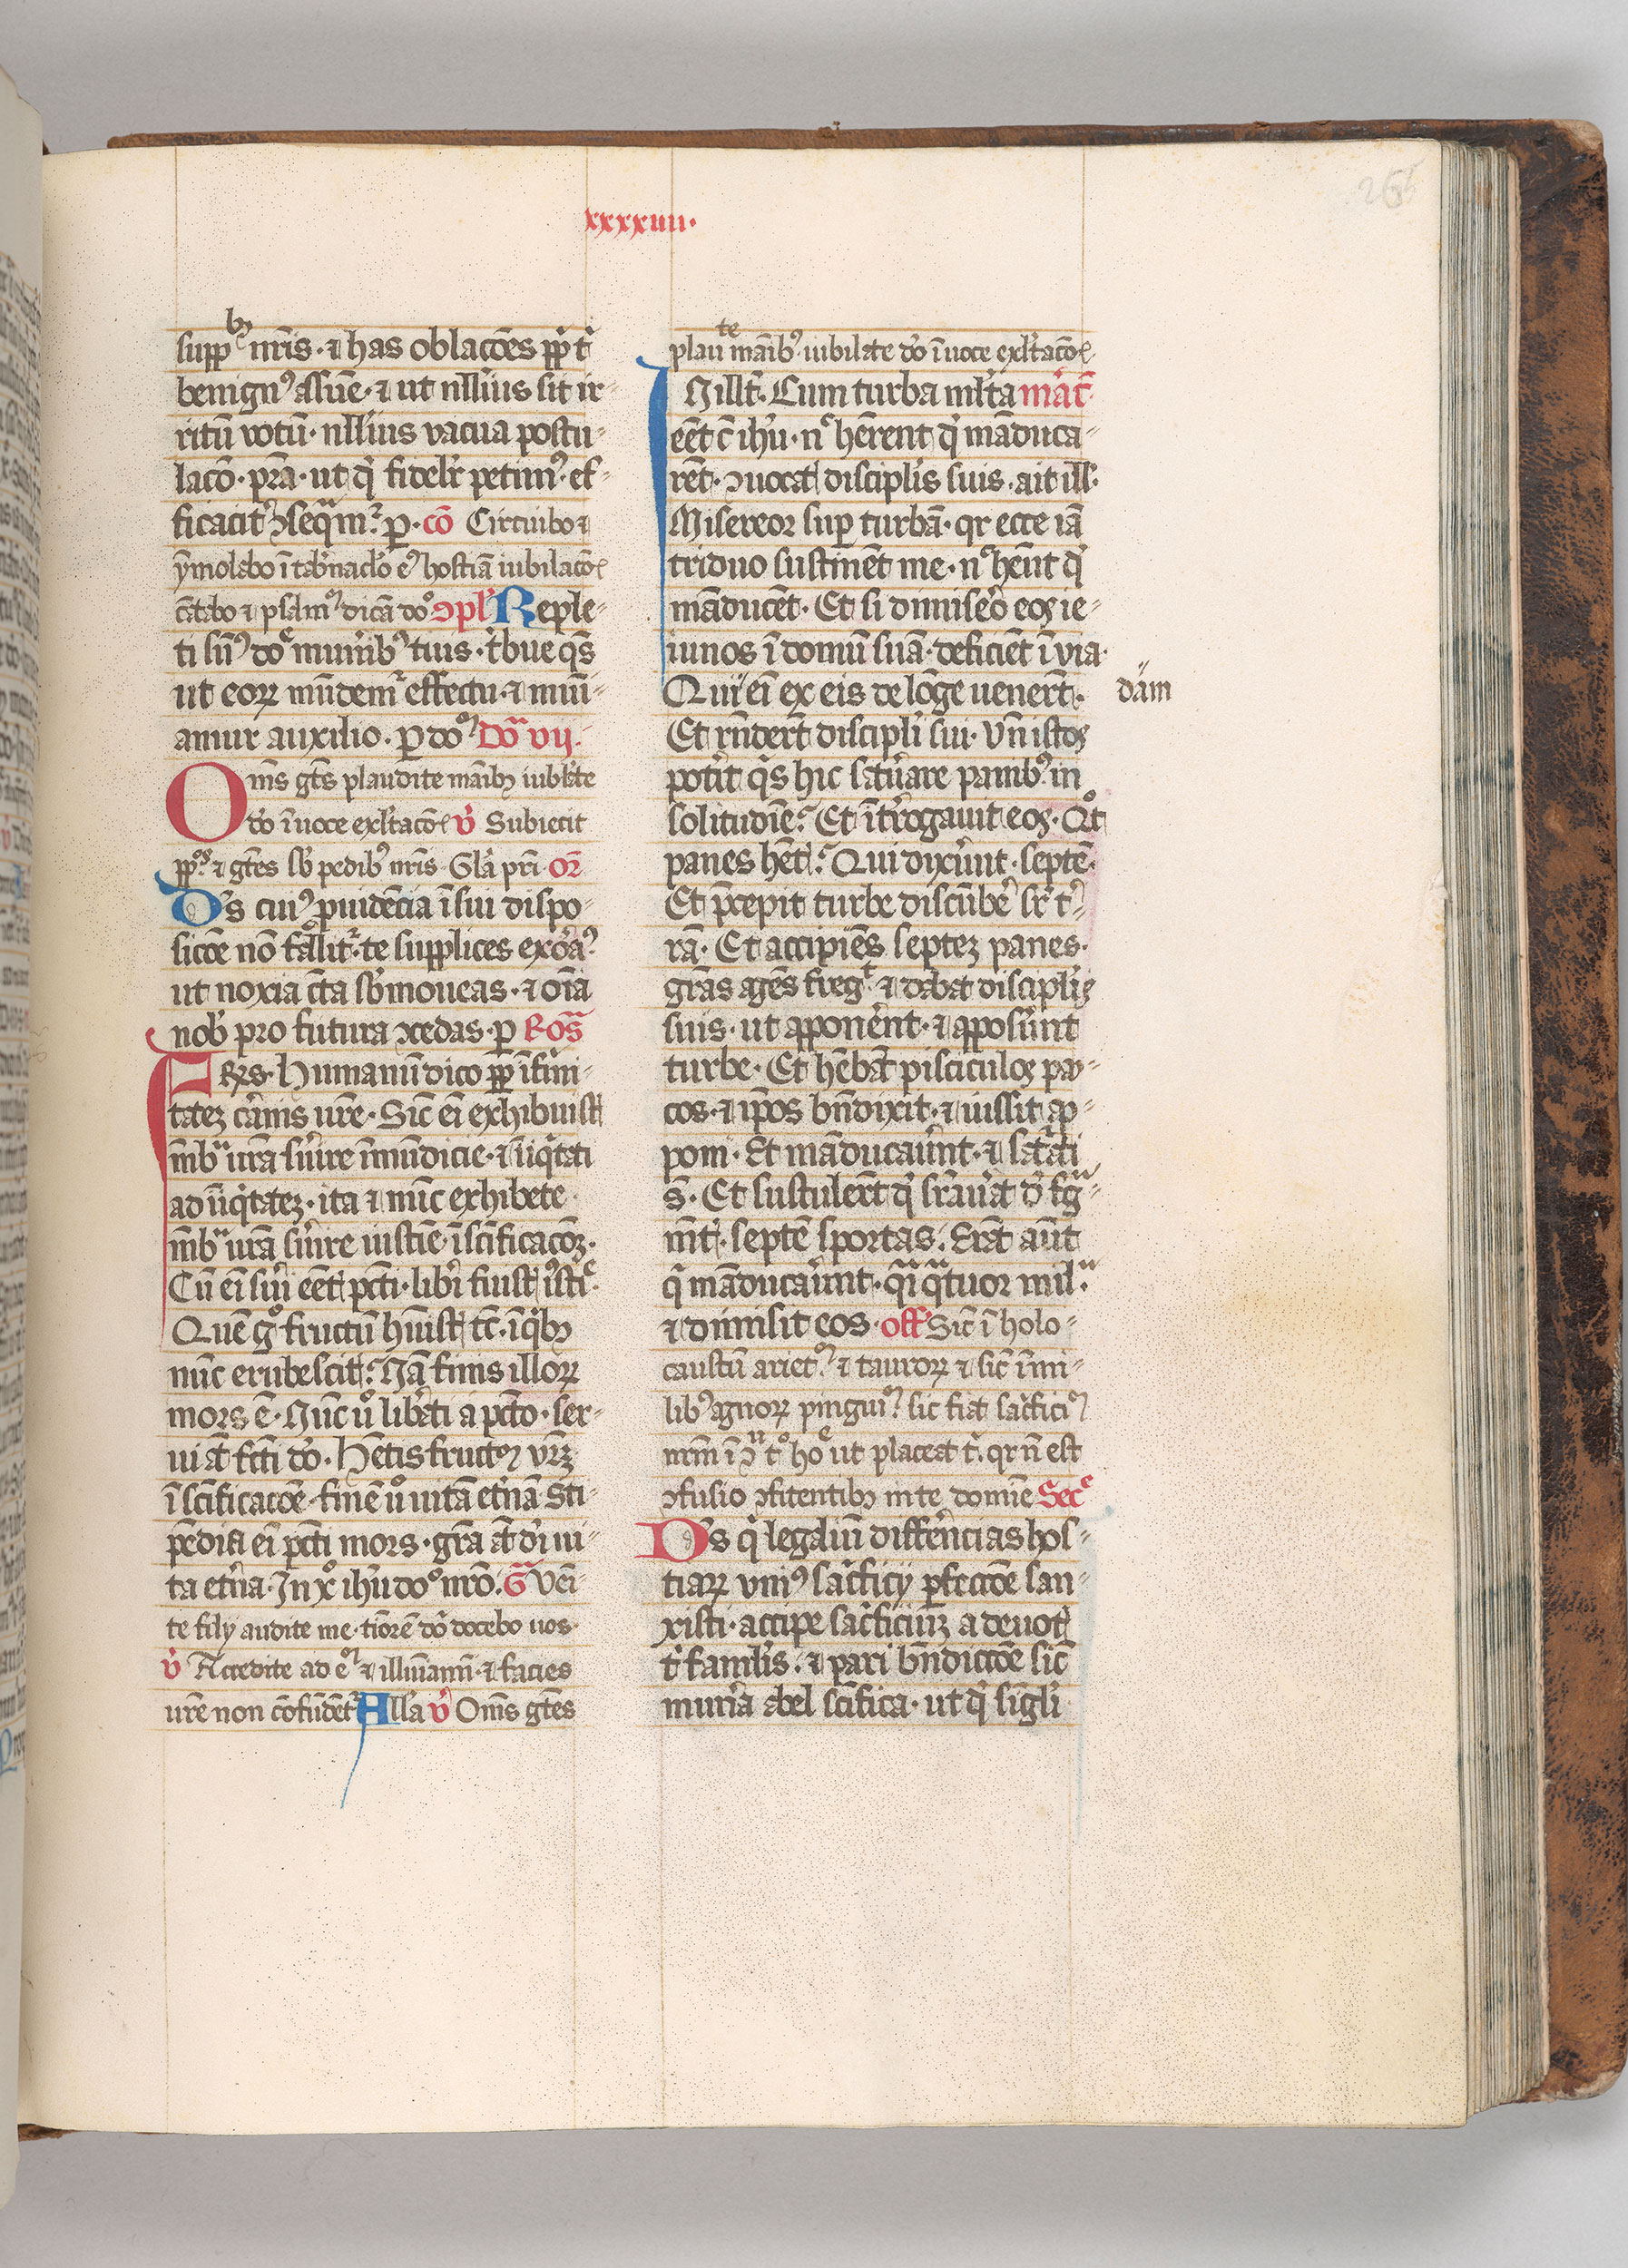 xxxxiiii.
265
supp^bꝰ nr̄is · ⁊ has oblac̄ōes ꝓp̄ t̄
benignꝰ assūe · ⁊ ut nll̄ius sit ir-
ritū votū · nll̄ius vacua postu-
lac̄o · p̄ra · ut qḋ fidelr̄ petimꝰ · ef-
ficacit̄ ꝯseq̄mr̄ · ꝑ · cō Circuibo ⁊
ȳmolabo ī tab̄naclo eꝰ hostiā iubilac̄o
c̄atabo ⁊ psalmꝰ dicā dō ꝯpl̄ Reple-
ti sum̄ꝰ dō mun̄ibꝰ tuis · t̄bue qs̄
ut eoꝝ mūdemr̄ effectu · ⁊ muni-
amur auxilio · ꝑ dō Dō vij ·
Om̄s gt̄es plaudite mān̄ibꝫ iubl̄ate
dō ī uoce exl̄tac̄o v̄ Subiecit
pp̄ os̄ ⁊ gt̄es sb̄ pedibꝰ nr̄is · Gl̄a pr̄i · or̄
Ds̄ cuiꝰ ꝓuidēcia ī sui dispo-
sicōe nō fall̄it̄ · te supplices exōra°
ut noxia c̄ta sb̄moueas · ⁊ oīa
nob̄ pro futura ꝯcedas · ꝑ Ros̄
Fr̄s · Humanū dico ꝓp̄ īfirmi-
tatez carnis ur̄e · Sic̄ ei exhibuist̄
m̄bra ur̄a s̄uire īmūdicie · ⁊ īiq̄tati
ad īiq̄tatez · ita ⁊ nūc exhibete
m̄bra ur̄a s̄uire iusticīe īsc̄ificacōz ·
Cū ei s̄ui eēt̄ pc̄ti · lib̄i fuist̄ iusticie ·
Quē g° fructū hūist̄ tc̄ · ī qbꝫ
nūc erubescit̄ · Nā finis illoꝝ
mors ē · Nūc u° lib̄ati a pc̄to · ser-
ui āt fc̄ti dō · Hēt̄is fructū vrm̄
ī sc̄ificacōe · finē u° uitā et̄nā Sti-
pēdia ei pc̄ti mors · gr̄a āt dī ui-
ta et̄na · In x° ih̄u do° nr̄o · Ḡ Vei-
te filij audite me · timorē dō docebo uos ·
v̄ Accedite ad eū ⁊ illūiam̄i · ⁊ facies
ur̄e non cōfūdēt̄ All̄a v̄ Om̄s gt̄es
plau^te mān̄ibꝰ iubilate dō ī uoce exl̄tac̄oe ·
In illt̄ · Cum turba ml̄ta mart̄ ·
eēt c̄ ih̄u · n^c hēren̄t qd̄ māduca-
rēt · ꝯuocat̄ discipl̄is suis · ait ill̄ ·
Misereor sup̄ turbā · qr ecce iā
triduo sustinēt me · n^c hēn̄t qd̄
māducēt · Et si dimis̄eo eos ie-
iunos ī domū suā · deficiēt ī via ·
Qui″ ei ex eis de lōge uenert̄ ·
″dam
Et rn̄dert̄ discipl̄i sui · Vn̄ istos
pot̄it qs̄ hic sat̄uare panibꝰ in
solitudīe · Et īt̄rogauit eos · Qt°
panes hēt̄ · Qui dixer̄ut · septē ·
Et p̄cepit turbe discūbe sr̄ t̄-
rā · Et accipiēs septez panes ·
gr̄as agēs freg^t ⁊ dabat discipl̄is
suis · ut apponēr̄nt · ⁊ apposur̄nt
turbe · Et hēbāt pisciculos pau-
cos · ⁊ ip̄os bn̄dixit · ⁊ iussit ap-
poni · Et māducauer̄nt · ⁊ satr̄ati
s̄ · Et sustulert̄ qd̄ sr̄auat̄ d̄ frag-
mt̄ · septē sportas · Erāt aūt
q̄ māducauer̄nt · q̄i q̄tuor mil^a ·
⁊ dimisit eos · off̄ Sic̄ ī holo-
caustū arietū ⁊ tauroꝝ ⁊ sic̄ ī mi-
libꝰ agnoꝝ pinguiū · sic fiat sac̄ficiū
nr̄m ī ꝯ^u t° ho^e ut placeat t̄ · qr n̄ est
ꝯfusio ꝯfitentibꝫ in te domīe Sec̄
Ds̄ q̄ legaliū differēncias hos-
tiaꝝ vniꝰ sac̄ficij ꝑfeccōe san-
xisti · accipe sac̄ficiūz a deuot̄
t̄ famul̄is · ⁊ pari bn̄diccōe sic̄
mun̄a abel sc̄ifica · ut qd̄ sīgl̄i